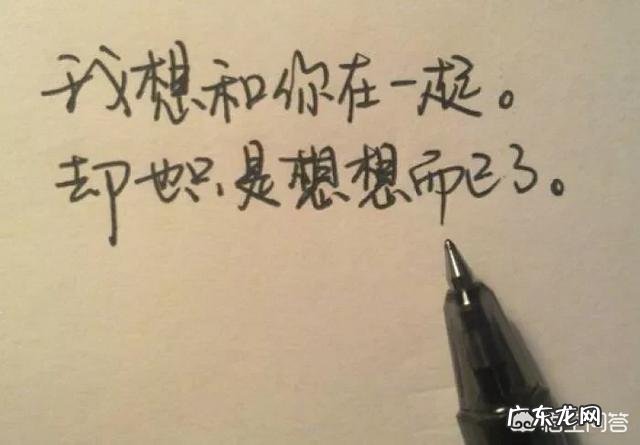 我想和你在一起。
却也只是想想而已了。
广东龙网
悟空问答